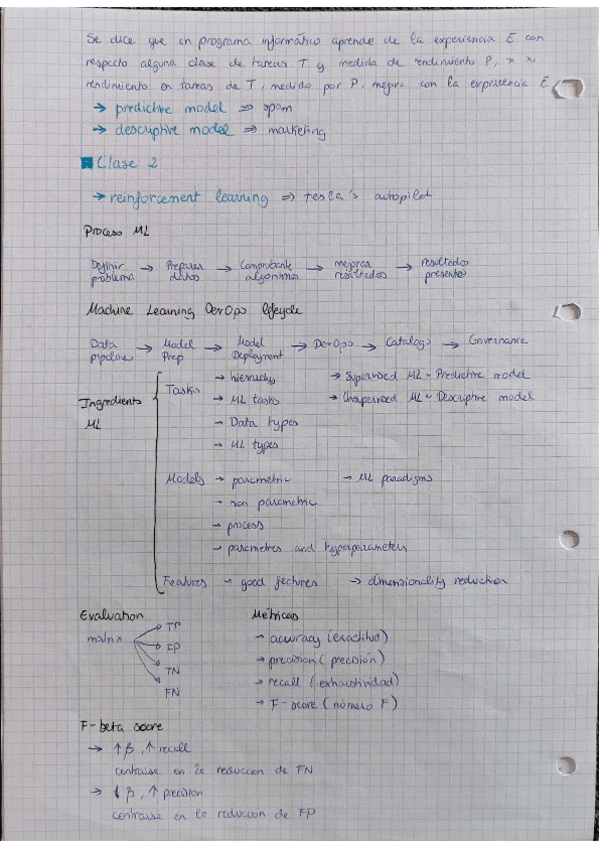 Se dice que un programa informático aprende de la experiencia E con
respecto alguna clase de tareas T y medida de rendimiento P, si su
rendimiento en tareas de T, medido por P, mejora con la experiencia E
→ predictive model ⇒ spam
→ descriptive model ⇒ marketing
Clase 2
→ reinforcement learning ⇒ Tesla's autopilot
Proceso ML
Definir problema → Preparar datos → algoritmos → mejorar resultados → resultados
Machine Learning DevOps lifecycle
Data pipeline → Model Prep → Model Deployment → DevOps → Catalogo → Governance
Ingredients ML
Tasks → hierarchy → Supervised ML ~ Predictive model
→ ML tasks → Unsupervised ML ~ Descriptive model
→ Data types
→ ML types
Models → parametric → ML paradigms
→ non parametric
→ process
→ parametres and hyperparameters
Features → good features → dimensionality reduction
Evaluation Métricas
matrix → TP → accuracy (exactitud)
→ FP → precision (precisión)
→ TN → recall (exhaustividad)
→ FN → F-score (número F)
F-beta score
→ ↑ β, ↑ recall
centrarse en la reduccion de FN
→ ↓ β, ↑ precision
centrarse en la reducción de FP